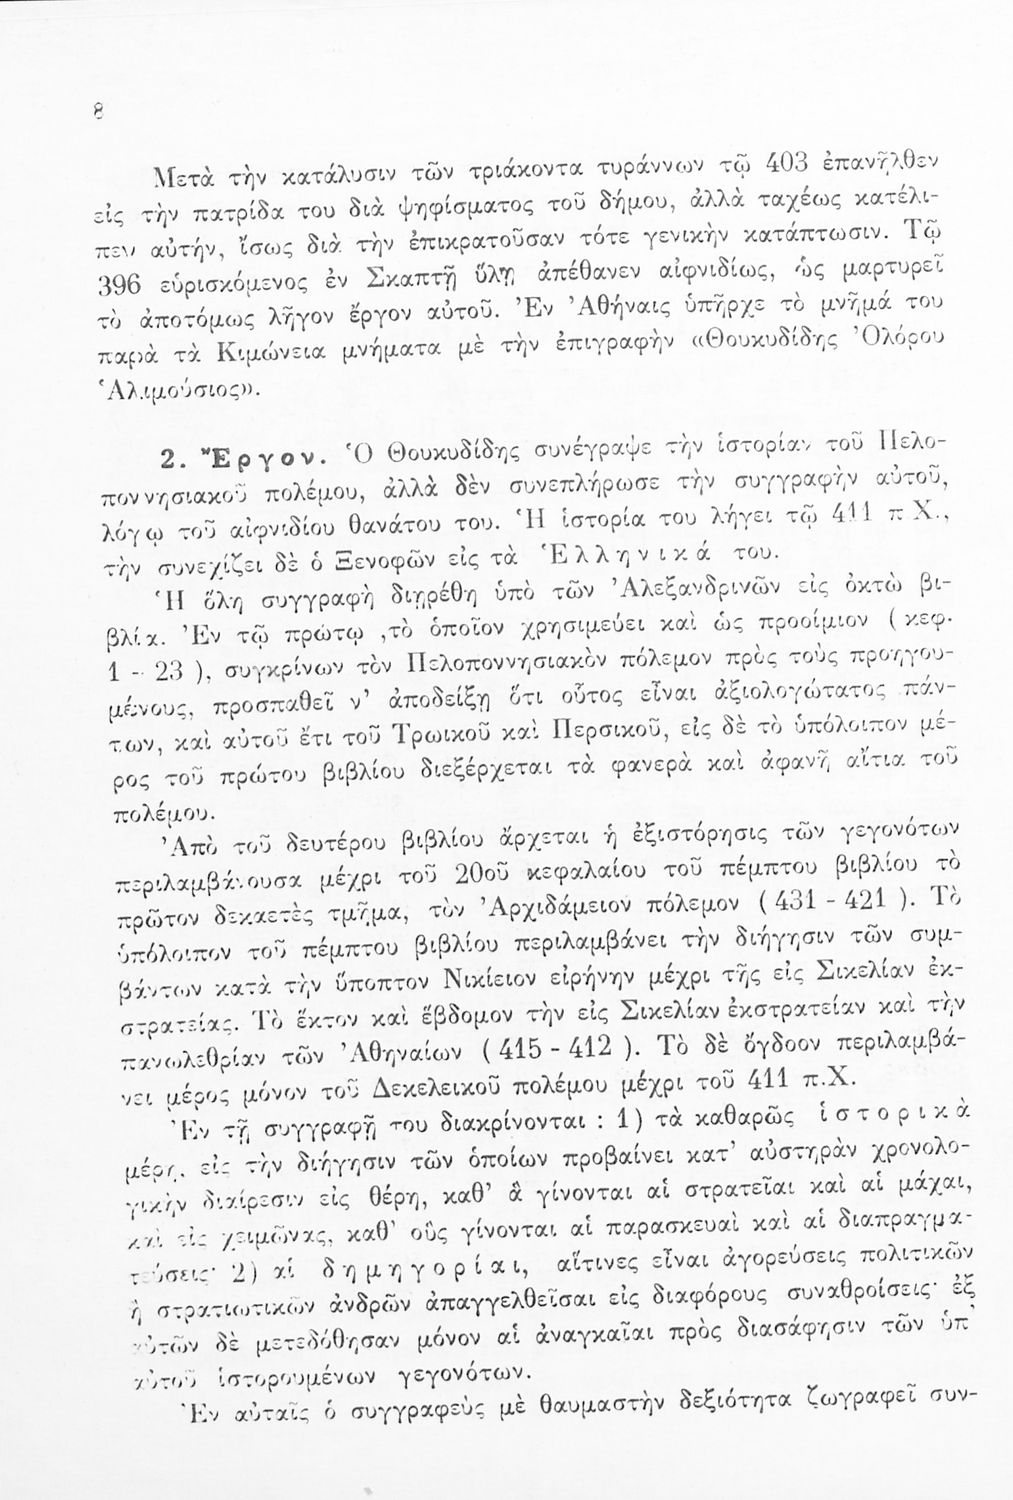 8
Μετὰ τὴν κατάλυσιν τῶν τριάκοντα τυράννων τῷ 403 ἐπανῆλθεν
εἰς τὴν πατρίδα του διὰ ψηφίσματος τοῦ δήμου, ἀλλὰ ταχέως κατέλι-
πεν αὐτήν, ἴσως διὰ τὴν ἐπικρατοῦσαν τότε γενικὴν κατάπτωσιν. Τῷ
396 εὑρισκόμενος ἐν Σκαπτῇ ὕλῃ ἀπέθανεν αἰφνιδίως, ὡς μαρτυρεῖ
τὸ ἀποτόμως λῆγον ἔργον αὐτοῦ. Ἐν Ἀθήναις ὑπῆρχε τὸ μνῆμά του
παρὰ τὰ Κιμώνεια μνήματα μὲ τὴν ἐπιγραφὴν «Θουκυδίδης Ὀλόρου
Ἁλιμούσιος».
2. Ἔργον. Ὁ Θουκυδίδης συνέγραψε τὴν ἱστορίαν τοῦ Πελο-
ποννησιακοῦ πολέμου, ἀλλὰ δὲν συνεπλήρωσε τὴν συγγραφὴν αὐτοῦ,
λόγῳ τοῦ αἰφνιδίου θανάτου του. Ἡ ἱστορία του λήγει τῷ 411 π Χ.,
τὴν συνεχίζει δὲ ὁ Ξενοφῶν εἰς τὰ Ἑλληνικά του.
Ἡ ὅλη συγγραφὴ διῃρέθη ὑπὸ τῶν Ἀλεξανδρινῶν εἰς ὀκτὼ βι-
βλία. Ἐν τῷ πρώτῳ ,τὸ ὁποῖον χρησιμεύει καὶ ὡς προοίμιον ( κεφ.
1 - 23 ), συγκρίνων τὸν Πελοποννησιακὸν πόλεμον πρὸς τοὺς προηγου-
μένους, προσπαθεῖ ν' ἀποδείξῃ ὅτι οὗτος εἶναι ἀξιολογώτατος πάν-
των, καὶ αὐτοῦ ἔτι τοῦ Τρωικοῦ καὶ Περσικοῦ, εἰς δὲ τὸ ὑπόλοιπον μέ-
ρος τοῦ πρώτου βιβλίου διεξέρχεται τὰ φανερὰ καὶ ἀφανῆ αἴτια τοῦ
πολέμου.
Ἀπὸ τοῦ δευτέρου βιβλίου ἄρχεται ἡ ἐξιστόρησις τῶν γεγονότων
περιλαμβάνουσα μέχρι τοῦ 20οῦ κεφαλαίου τοῦ πέμπτου βιβλίου τὸ
πρῶτον δεκαετὲς τμῆμα, τὸν Ἀρχιδάμειον πόλεμον ( 431 - 421 ). Τὸ
ὑπόλοιπον τοῦ πέμπτου βιβλίου περιλαμβάνει τὴν διήγησιν τῶν συμ-
βάντων κατὰ τὴν ὕποπτον Νικίειον εἰρήνην μέχρι τῆς εἰς Σικελίαν ἐκ-
στρατείας. Τὸ ἕκτον καὶ ἕβδομον τὴν εἰς Σικελίαν ἐκστρατείαν καὶ τὴν
πανωλεθρίαν τῶν Ἀθηναίων ( 415 - 412 ). Τὸ δὲ ὄγδοον περιλαμβά-
νει μέρος μόνον τοῦ Δεκελεικοῦ πολέμου μέχρι τοῦ 411 π.Χ.
Ἐν τῇ συγγραφῇ του διακρίνονται : 1) τὰ καθαρῶς ἱστορικὰ
μέρη, εἰς τὴν διήγησιν τῶν ὁποίων προβαίνει κατ' αὐστηρὰν χρονολο-
γικὴν διαίρεσιν εἰς θέρη, καθ' ἃ γίνονται αἱ στρατεῖαι καὶ αἱ μάχαι,
καὶ εἰς χειμῶνας, καθ' οὓς γίνονται αἱ παρασκευαὶ καὶ αἱ διαπραγμα-
τεύσεις· 2) αἱ δημηγορίαι, αἵτινες εἶναι ἀγορεύσεις πολιτικῶν
ἢ στρατιωτικῶν ἀνδρῶν ἀπαγγελθεῖσαι εἰς διαφόρους συναθροίσεις· ἐξ
αὐτῶν δὲ μετεδόθησαν μόνον αἱ ἀναγκαῖαι πρὸς διασάφησιν τῶν ὑπ'
αὐτοῦ ἱστορουμένων γεγονότων.
Ἐν αὐταῖς ὁ συγγραφεὺς μὲ θαυμαστὴν δεξιότητα ζωγραφεῖ συν-